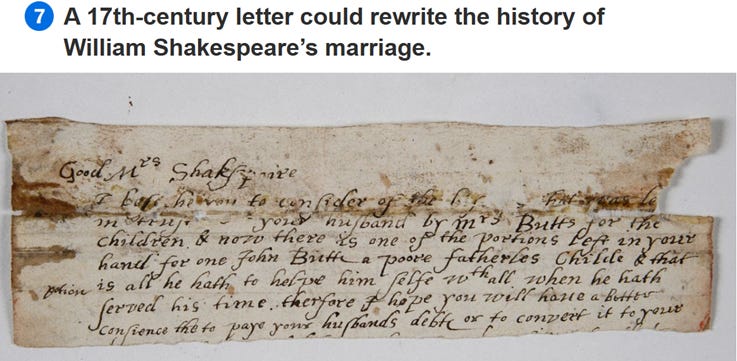 7 A 17th-century letter could rewrite the history of
William Shakespeare’s marriage.
Good Mrs Shakspaire
you to consider of the
in trust your husband by Mrs Butts for the
children, & now there is one of the portions left in your
hand for one John Butte a poore fatherles Childe & that
is all he hath to helpe him selfe wth all when he hath
served his time, therfore I hope you will have a better
Consience the to paye your husbands debte or to convert it to your